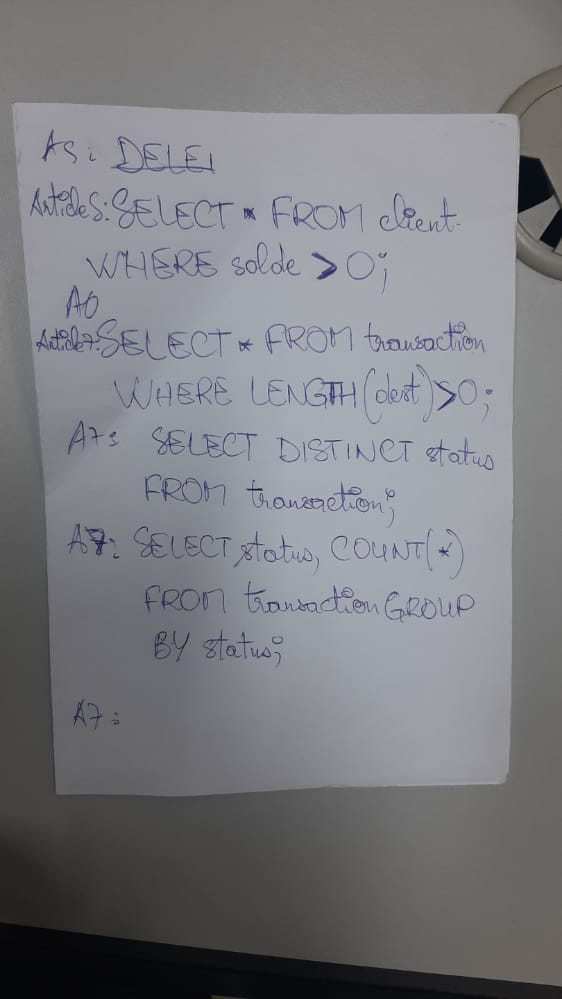 A5: DELEI
Article5: SELECT * FROM client
WHERE solde > 0;
A0
Article7: SELECT * FROM transaction
WHERE LENGTH(dest)>0;
A7: SELECT DISTINCT status
FROM transaction;
A7: SELECT status, COUNT(*)
FROM transaction GROUP
BY status;
A7: